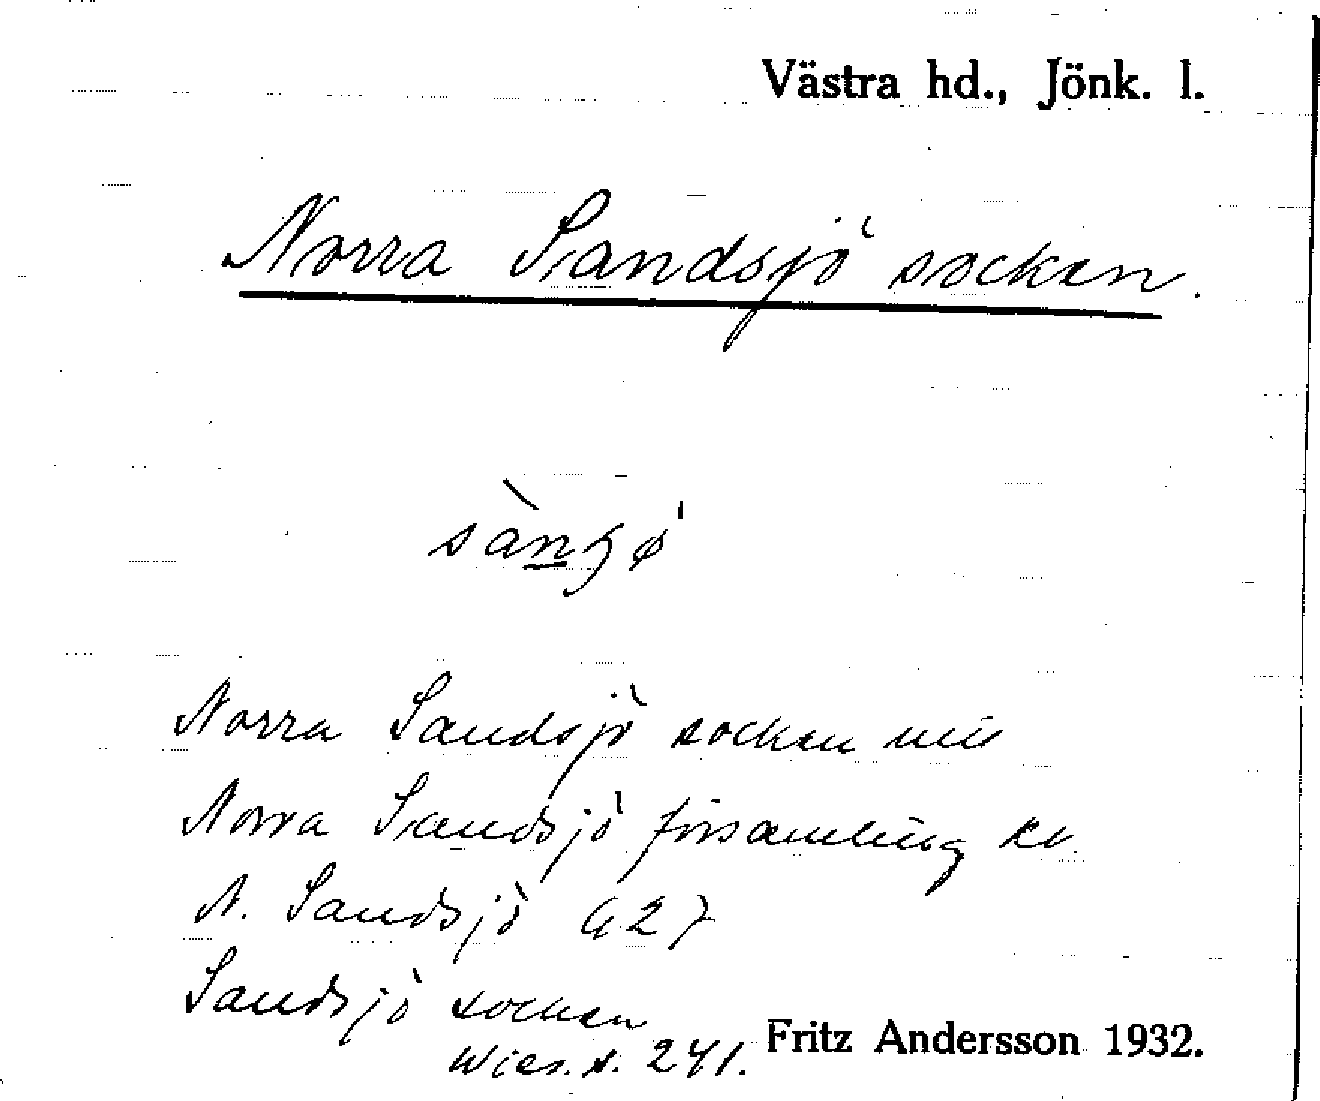 Västra hd., Jönk. l.
Norra Sandsjö socken.
Norra Sandsjö socken
Norra Sandsjö församling kt.
N. Sandsjö G 27
Sandsjö socken
Wies. s. 241.
Fritz Andersson 1932.